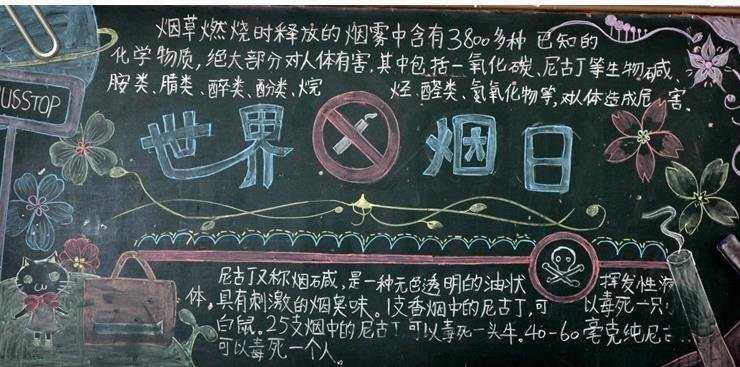 烟草燃烧时释放的烟雾中含有3800多种 已知的
化学物质,绝大部分对人体有害,其中包括一氧化碳、尼古丁等生物碱、
胺类、腈类、醇类、酚类、烷 烃、醛类、氮氧化物等,对人体造成危害。
USSTOP
世界 烟日
尼古丁又称烟碱,是一种无色透明的油状 挥发性液
体,具有刺激的烟臭味。1支香烟中的尼古丁,可 以毒死一只
白鼠。25支烟中的尼古丁可以毒死一头牛。40-60毫克纯尼古
可以毒死一个人。